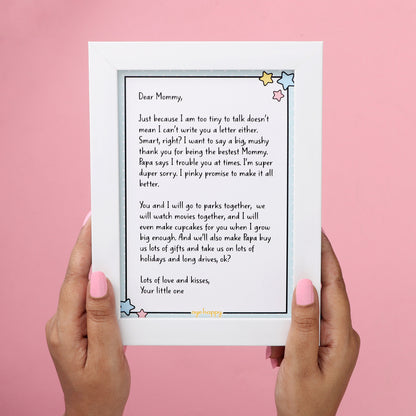 Dear Mommy,
Just because I am too tiny to talk doesn't
mean I can't write you a letter either.
Smart, right? I want to say a big, mushy
thank you for being the bestest Mommy.
Papa says I trouble you at times. I'm super
duper sorry. I pinky promise to make it all
better.
You and I will go to parks together, we
will watch movies together, and I will
even make cupcakes for you when I grow
big enough. And we'll also make Papa buy
us lots of gifts and take us on lots of
holidays and long drives, ok?
Lots of love and kisses,
Your little one
aye happy